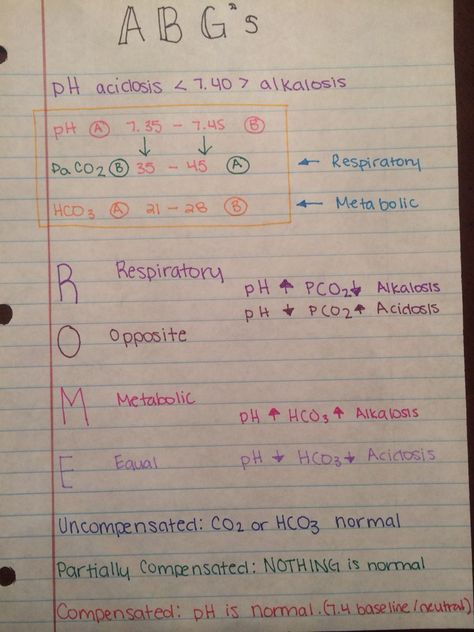 ABG's
pH acidosis < 7.40 > alkalosis
pH Ⓐ 7.35 - 7.45 Ⓑ
↓ ↓
PaCO2 Ⓑ 35 - 45 Ⓐ ← Respiratory
HCO3 Ⓐ 21 - 28 Ⓑ ← Metabolic
R Respiratory pH ↑ PCO2↓ Alkalosis
pH ↓ PCO2↑ Acidosis
O Opposite
M Metabolic pH ↑ HCO3↑ Alkalosis
E Equal pH ↓ HCO3↓ Acidosis
Uncompensated: CO2 or HCO3 normal
Partially Compensated: NOTHING is normal
Compensated: pH is normal. (7.4 baseline/neutral)